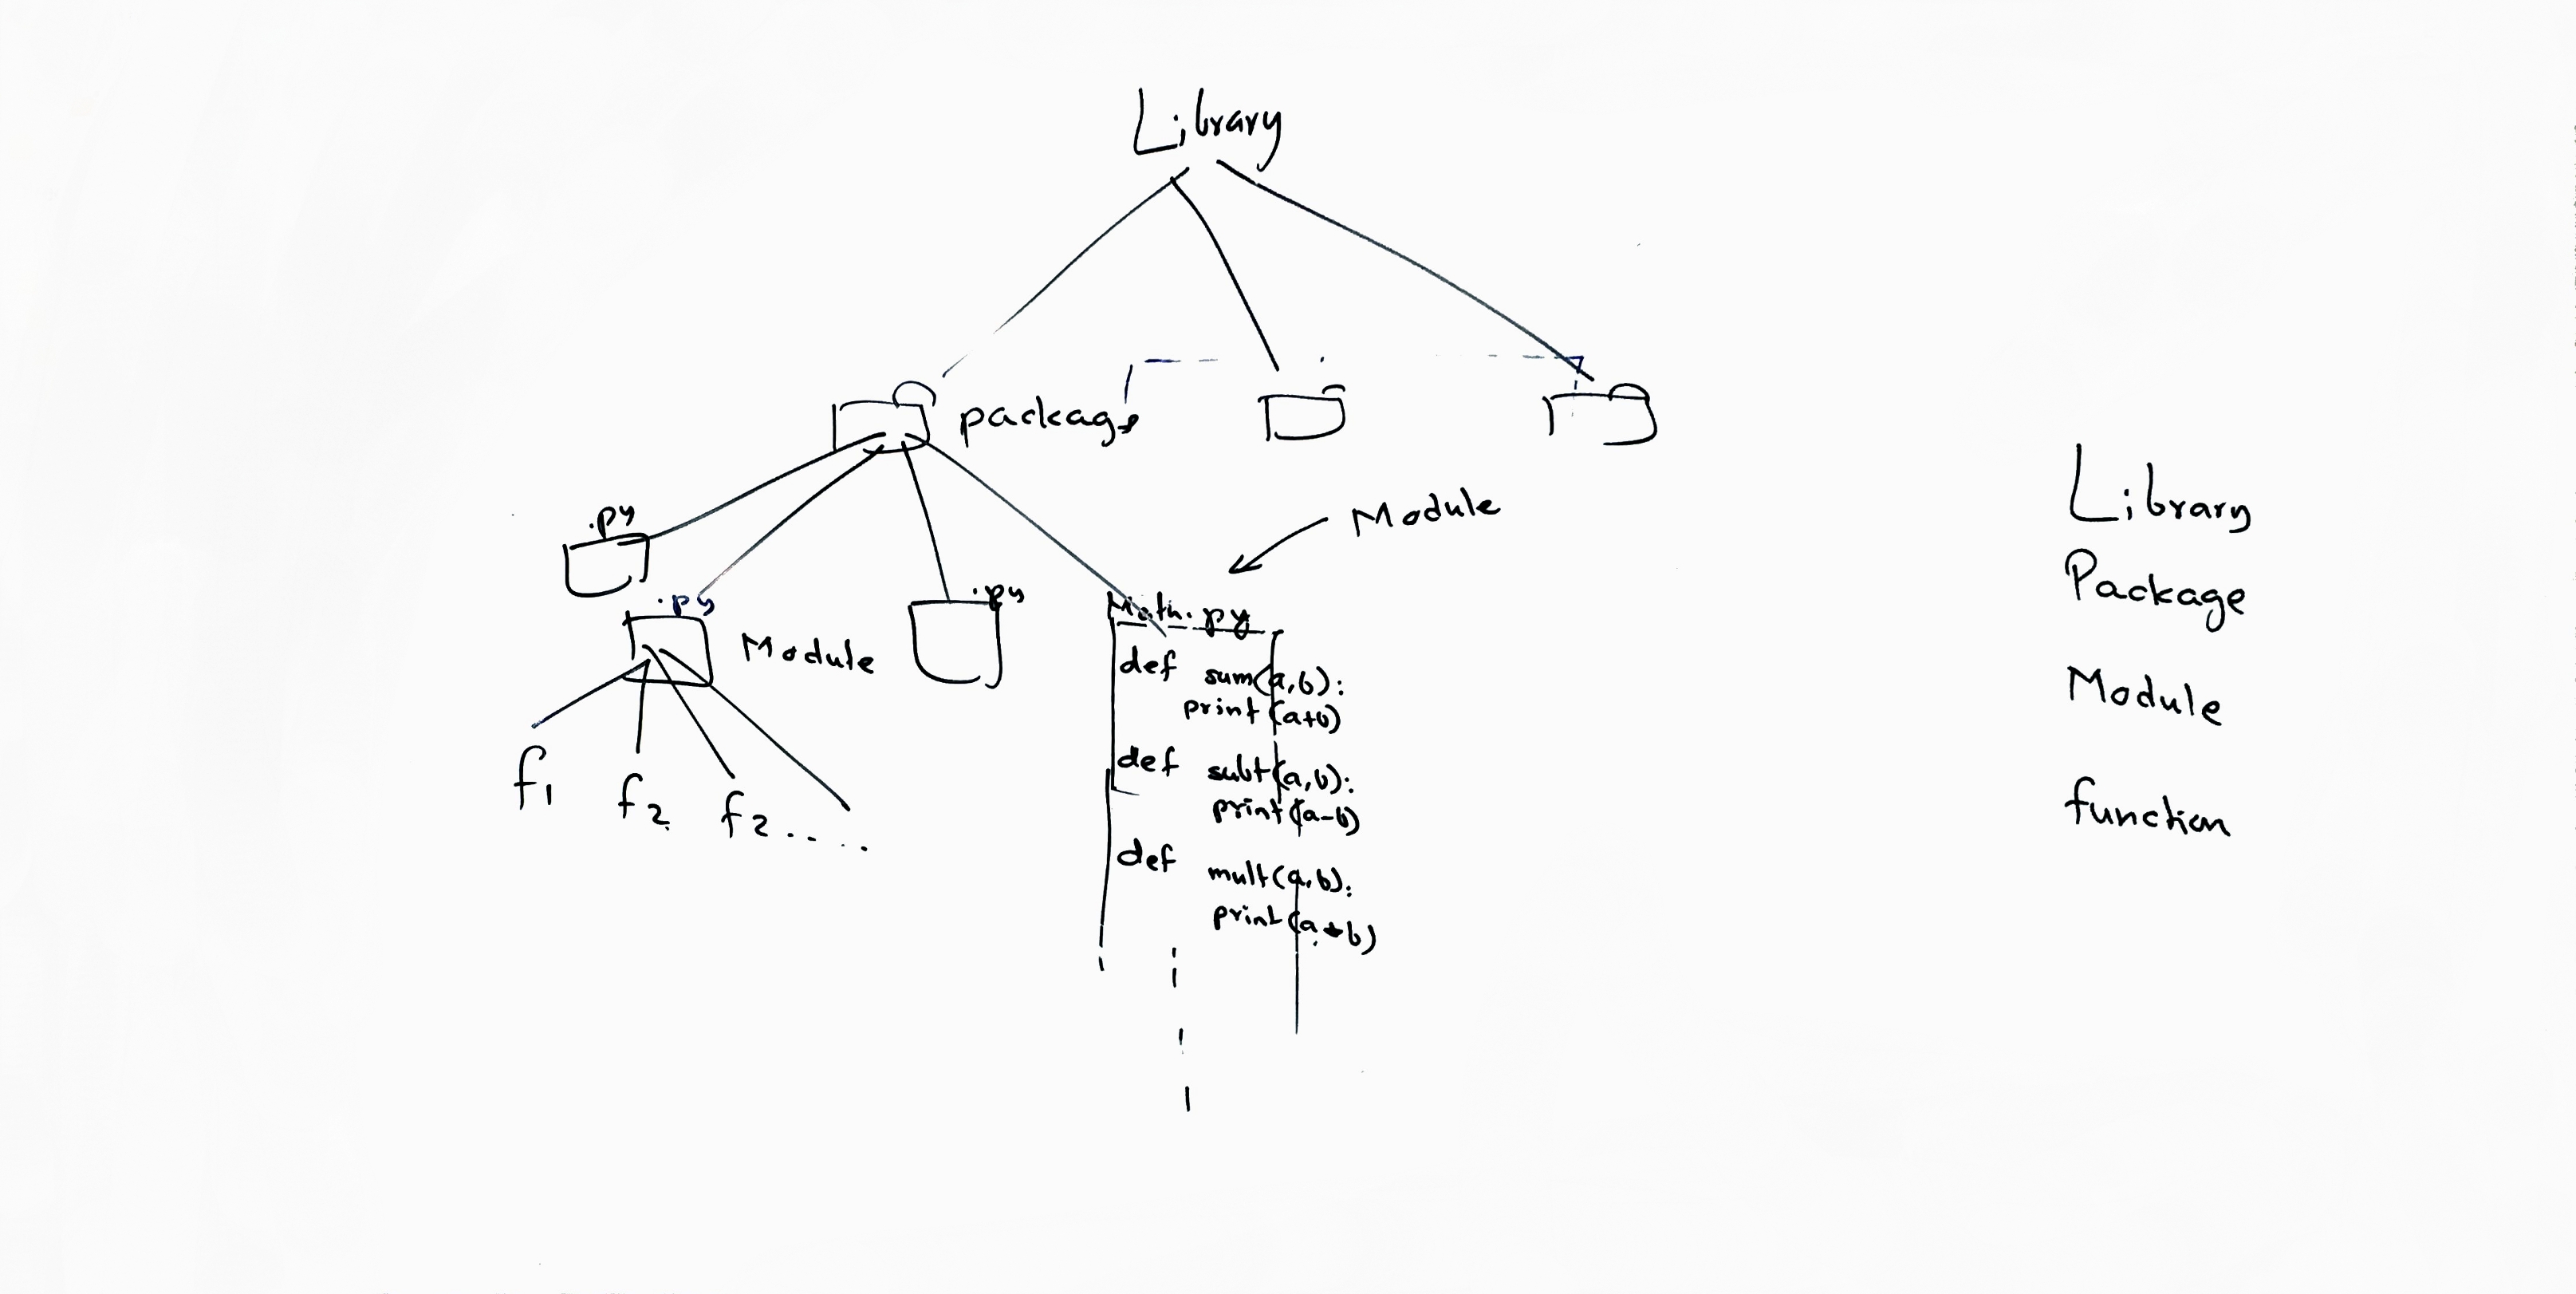 Library
package
Module
.py
.py
.py
Module
Math.py
def sum(a,b):
print(a+b)
def subt(a,b):
print(a-b)
def mult(a,b):
print(a*b)
f1
f2
f2.....
Library
Package
Module
function